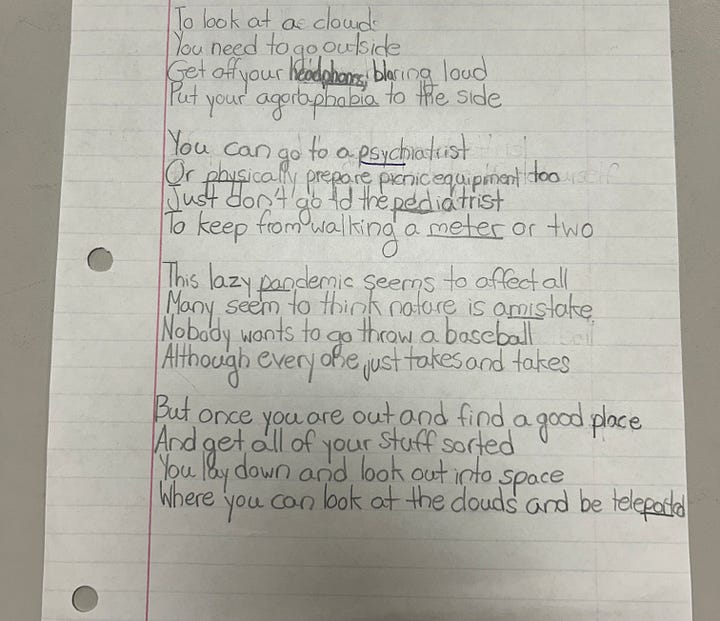 To look at a cloud
You need to go outside
Get off your headphones, blaring loud
Put your agoraphobia to the side
You can go to a psychiatrist
Or physically prepare picnic equipment too
Just don't go to the pediatrist
To keep from walking a meter or two
This lazy pandemic seems to affect all
Many seem to think nature is a mistake
Nobody wants to go throw a baseball
Although everyone just takes and takes
But once you are out and find a good place
And get all of your stuff sorted
You lay down and look out into space
Where you can look at the clouds and be teleported